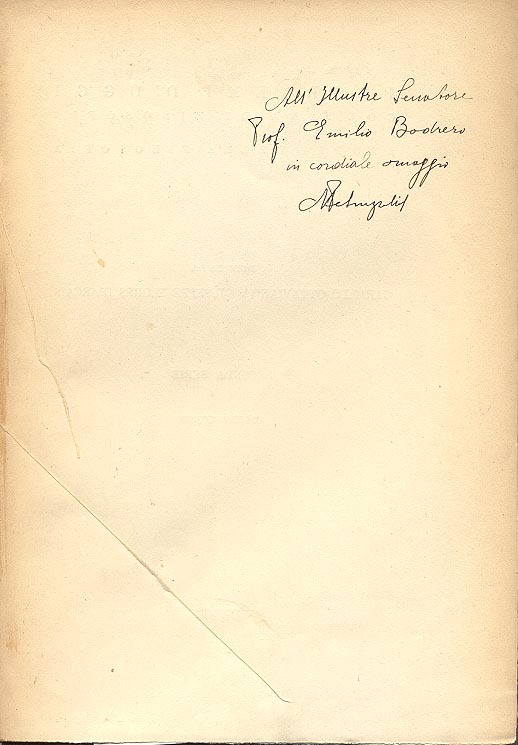 All' Illustre Senatore
Prof. Emilio Bodrero
in cordiale omaggio